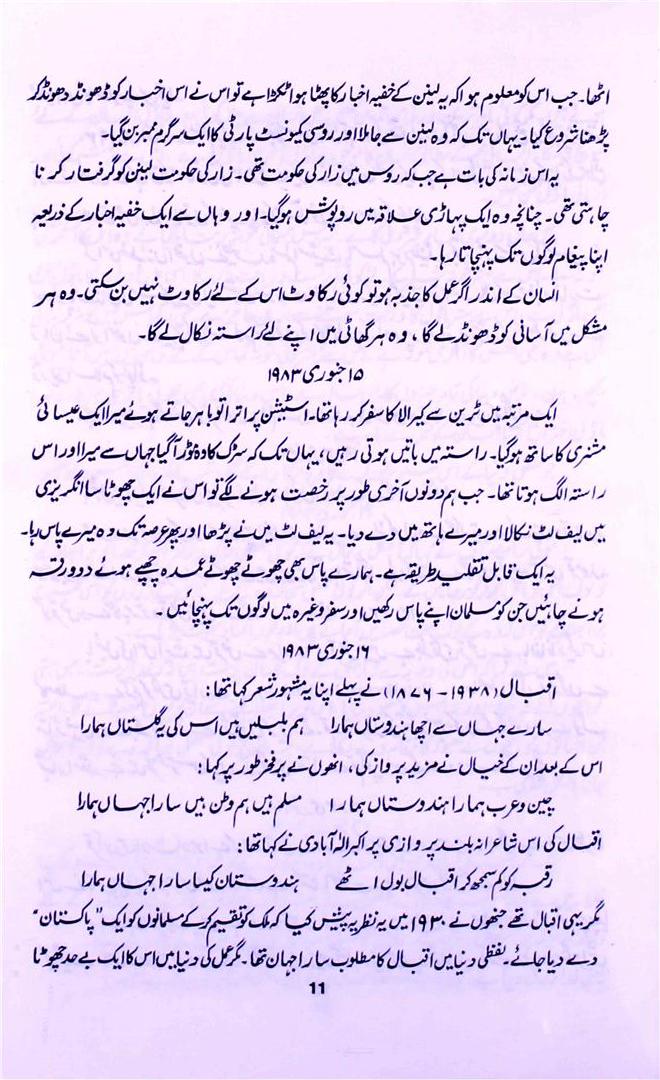 اٹھا۔ جب اس کو معلوم ہوا کہ یہ لینن کے خفیہ اخبار کا پھٹا ہوا ٹکڑا ہے تو اس نے اس اخبار کو ڈھونڈ ڈھونڈ کر
پڑھنا شروع کیا۔ یہاں تک کہ وہ لینن سے جا ملا اور روسی کمیونسٹ پارٹی کا ایک سرگرم ممبر بن گیا۔
یہ اس زمانہ کی بات ہے جب کہ روس میں زار کی حکومت تھی۔ زار کی حکومت لینن کو گرفتار کرنا
چاہتی تھی۔ چنانچہ وہ ایک پہاڑی علاقہ میں روپوش ہوگیا۔ اور وہاں سے ایک خفیہ اخبار کے ذریعہ
اپنا پیغام لوگوں تک پہنچاتا رہا۔
انسان کے اندر اگر عمل کا جذبہ ہو تو کوئی رکاوٹ اس کے لئے رکاوٹ نہیں بن سکتی۔ وہ ہر
مشکل میں آسانی کو ڈھونڈ لے گا، وہ ہر گھاٹی میں اپنے لئے راستہ نکال لے گا۔
۱۵ جنوری ۱۹۸۳
ایک مرتبہ میں ٹرین سے کیرالا کا سفر کر رہا تھا۔ اسٹیشن پر اترا تو باہر جاتے ہوئے میرا ایک عیسائی
مشنری کا ساتھ ہوگیا۔ راستہ میں باتیں ہوتی رہیں، یہاں تک کہ سڑک کا وہ موڑ آگیا جہاں سے میرا اور اس
راستہ الگ ہوتا تھا۔ جب ہم دونوں آخری طور پر رخصت ہونے لگے تو اس نے ایک چھوٹا سا انگریزی
میں لیف لٹ نکالا اور میرے ہاتھ میں دے دیا۔ یہ لیف لٹ میں نے پڑھا اور پھر عرصہ تک وہ میرے پاس رہا۔
یہ ایک قابل تقلید طریقہ ہے۔ ہمارے پاس بھی چھوٹے چھوٹے عمدہ چھپے ہوئے دو ورقہ
ہونے چاہئیں جن کو مسلمان اپنے پاس رکھیں اور سفر وغیرہ میں لوگوں تک پہنچائیں۔
۱۶ جنوری ۱۹۸۳
اقبال (۱۹۳۸ - ۱۸۷۶) نے پہلے اپنا یہ مشہور شعر کہا تھا:
سارے جہاں سے اچھا ہندوستاں ہمارا ہم بلبلیں ہیں اس کی یہ گلستاں ہمارا
اس کے بعد ان کے خیال نے مزید پرواز کی، انھوں نے پر فخر طور پر کہا:
چین و عرب ہمارا ہندوستاں ہمارا مسلم ہیں ہم وطن ہیں سارا جہاں ہمارا
اقبال کی اس شاعرانہ بلند پروازی پر اکبر الٰہ آبادی نے کہا تھا:
رقبہ کو کم سمجھ کر اقبال بول اٹھے ہندوستان کیسا سارا جہاں ہمارا
مگر یہی اقبال تھے جنھوں نے ۱۹۳۰ میں یہ نظریہ پیش کیا کہ ملک کو تقسیم کرکے مسلمانوں کو ایک "پاکستان"
دے دیا جائے۔ لفظی دنیا میں اقبال کا مطلوب سارا جہان تھا۔ مگر عمل کی دنیا میں اس کا ایک بے حد چھوٹا
11